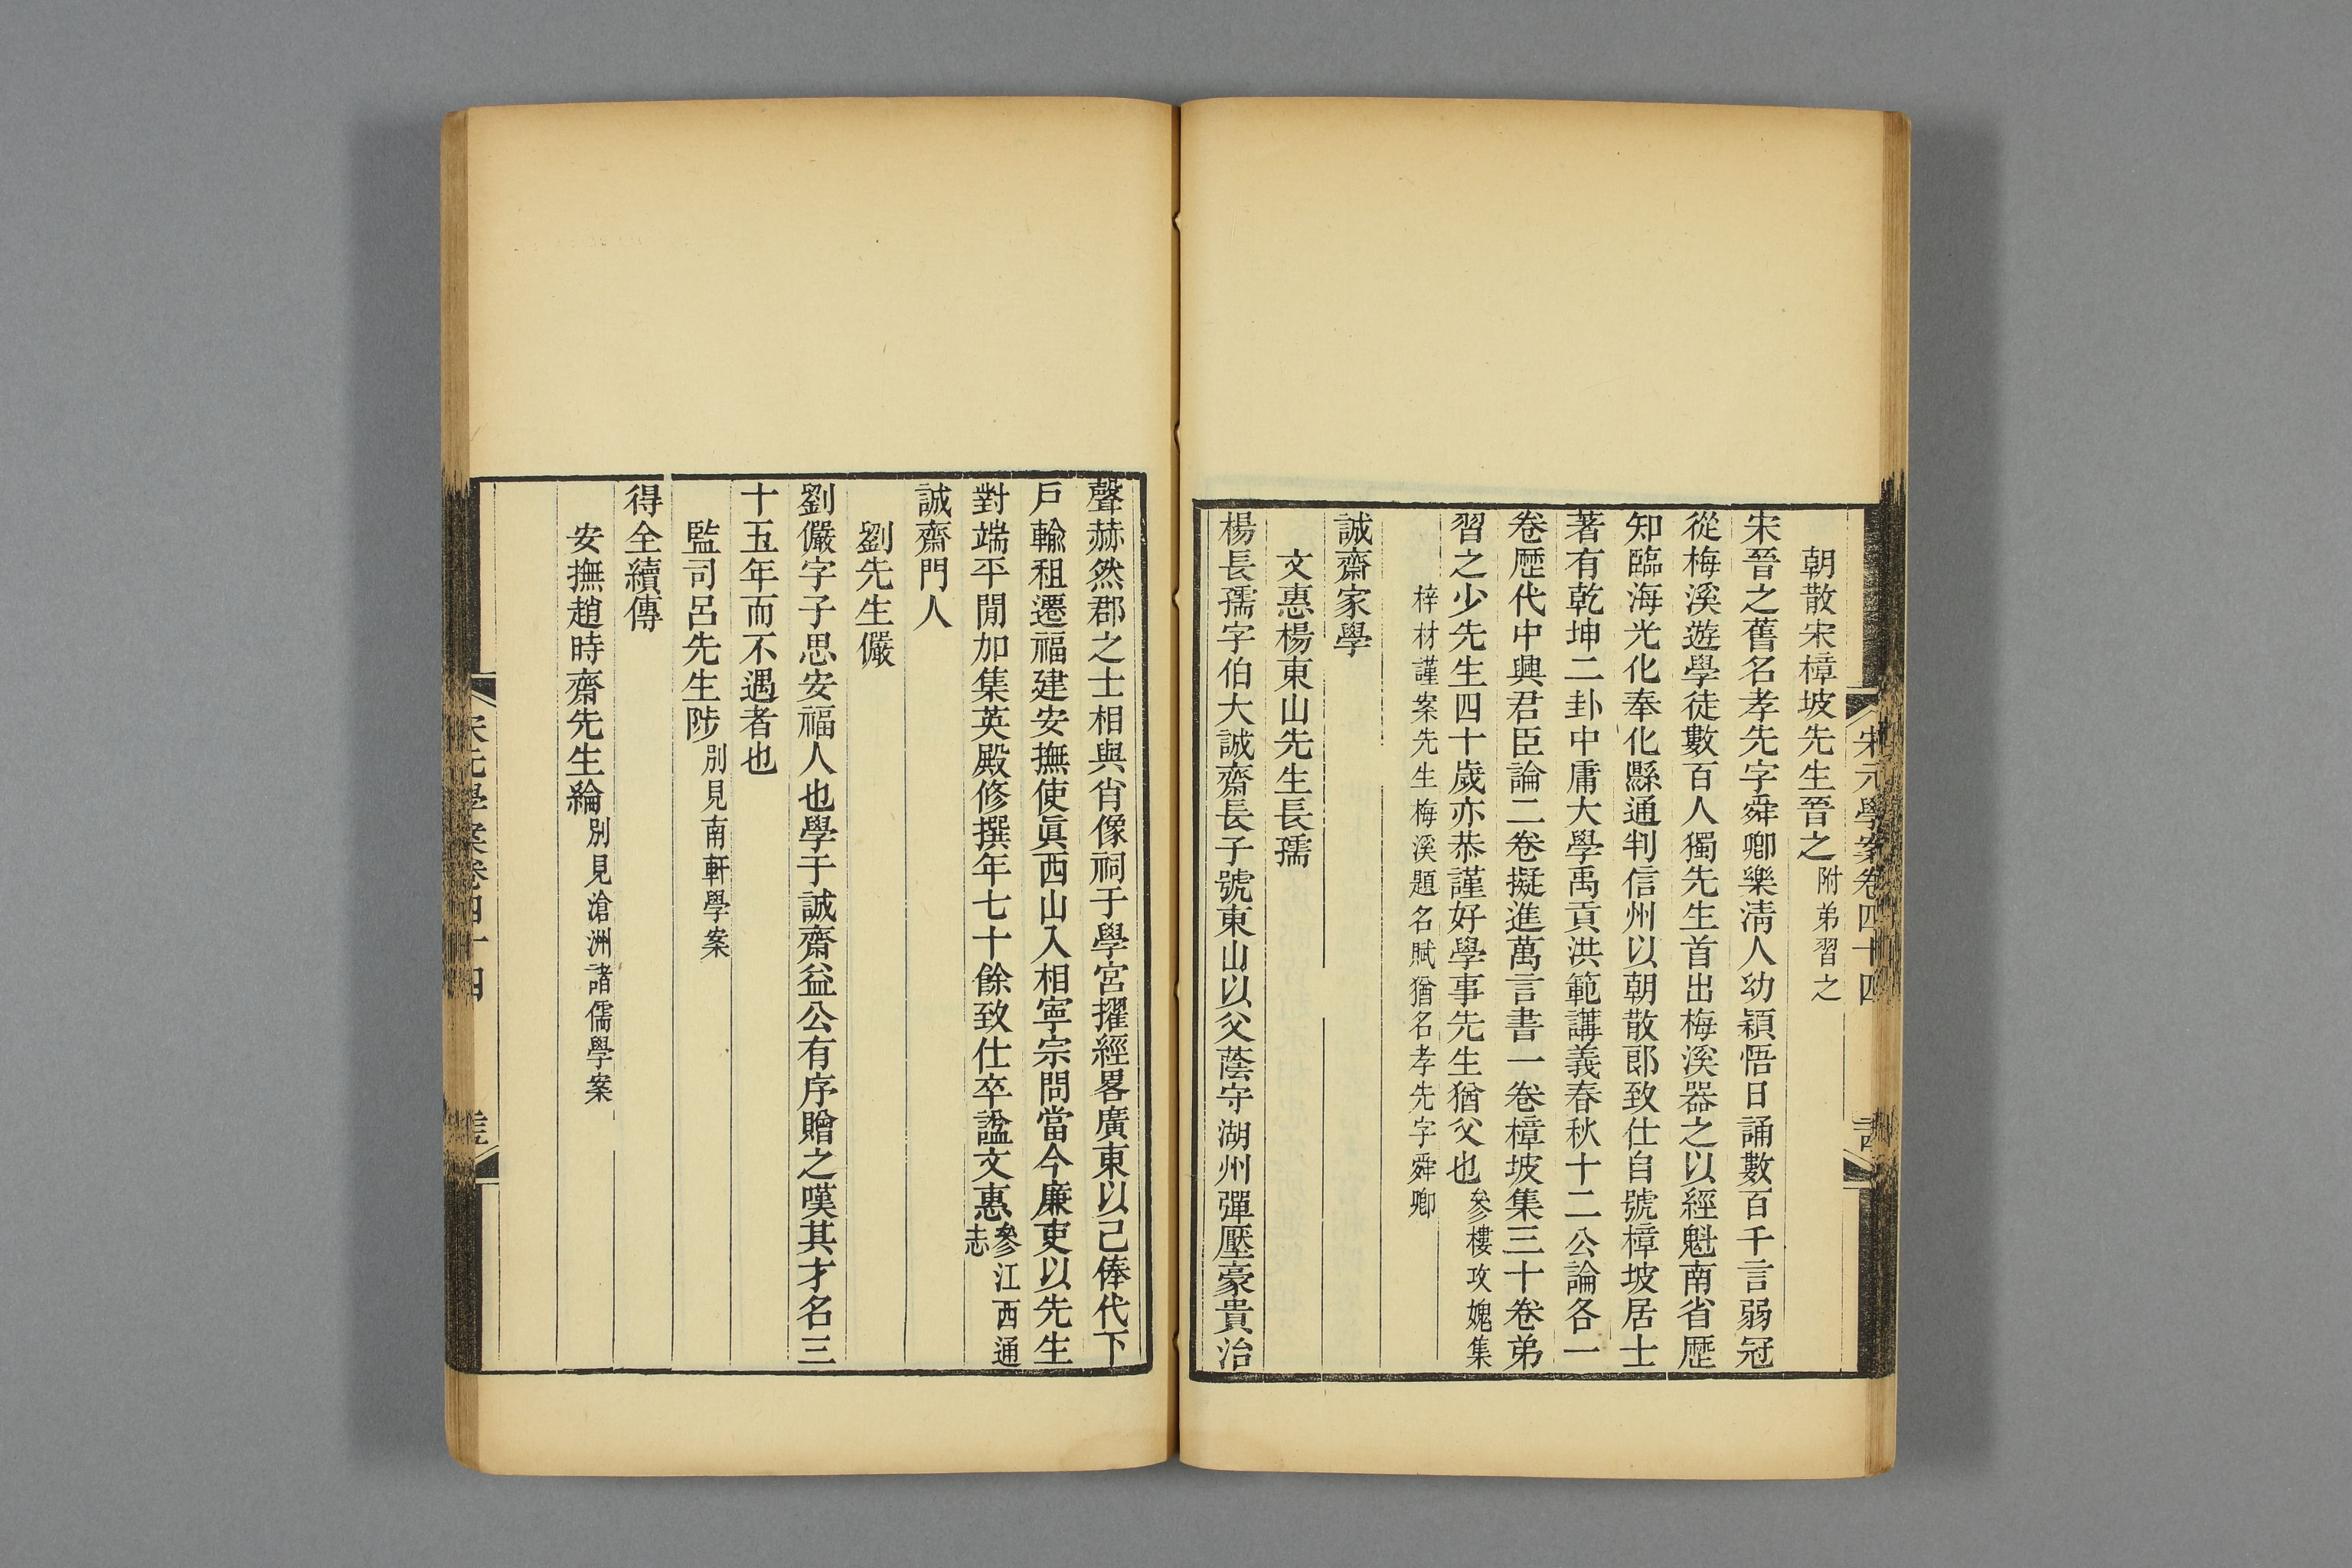 宋元學案卷四十四
朝散宋樟坡先生晉之附弟習之
宋晉之舊名孝先字舜卿樂淸人幼穎悟日誦數百千言弱冠
從梅溪遊學徒數百人獨先生首出梅溪器之以經魁南省歷
知臨海光化奉化縣通判信州以朝散郎致仕自號樟坡居士
著有乾坤二卦中庸大學禹貢洪範講義春秋十二公論各一
卷歷代中興君臣論二卷擬進萬言書一卷樟坡集三十卷弟
習之少先生四十歲亦恭謹好學事先生猶父也參樓攻媿集
梓材謹案先生梅溪題名賦猶名孝先字舜卿
誠齋家學
文惠楊東山先生長孺
楊長孺字伯大誠齋長子號東山以父蔭守湖州彈壓豪貴治
聲赫然郡之士相與肖像祠于學宮擢經畧廣東以己俸代下
戶輸租遷福建安撫使眞西山入相寧宗問當今廉吏以先生
對端平閒加集英殿修撰年七十餘致仕卒諡文惠參江西通志
誠齋門人
劉先生儼
劉儼字子思安福人也學于誠齋益公有序贈之嘆其才名三
十五年而不遇者也
監司呂先生陟別見南軒學案
得全續傳
安撫趙時齋先生綸別見滄洲諸儒學案
宋元學案卷四十四